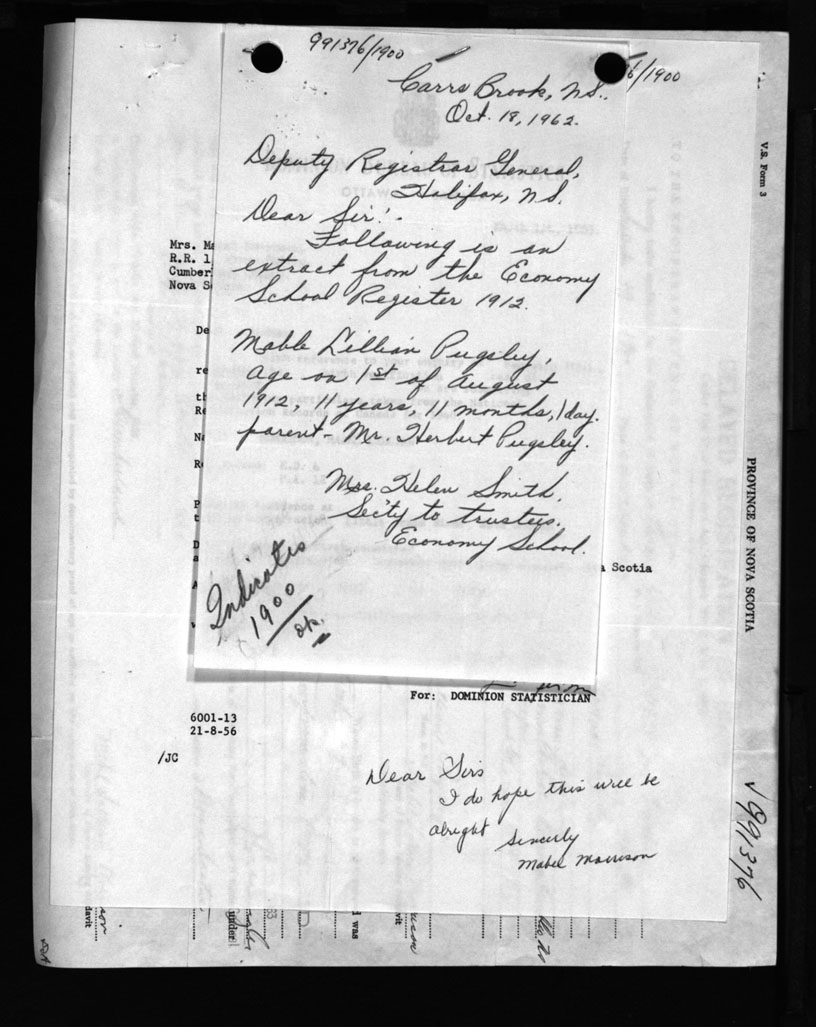 991376/1900
6/1900
Carrs Brook, N.S.
Oct. 18, 1962.
Deputy Registrar General,
Halifax, N.S.
Dear Sir:-
Following is an
extract from the Economy
School Register 1912.
Mable Lillian Pugsley,
age on 1st of August
1912, 11 years, 11 months, 1 day.
parent - Mr. Herbert Pugsley.
Mrs. Helen Smith,
Sec'ty to trustees.
Economy School.
Indicates
1900
ok.
Mrs. Ma
R.R. 1
Cumber
Nova S
De
re
th
Re
Na
Re
P
t
D
a
A
Scotia
For: DOMINION STATISTICIAN
6001-13
21-8-56
/JC
Dear Sirs
I do hope this will be
alright
Sincerly
Mabel Morrison
V.S. Form 3
PROVINCE OF NOVA SCOTIA
991376
davit
under
I was